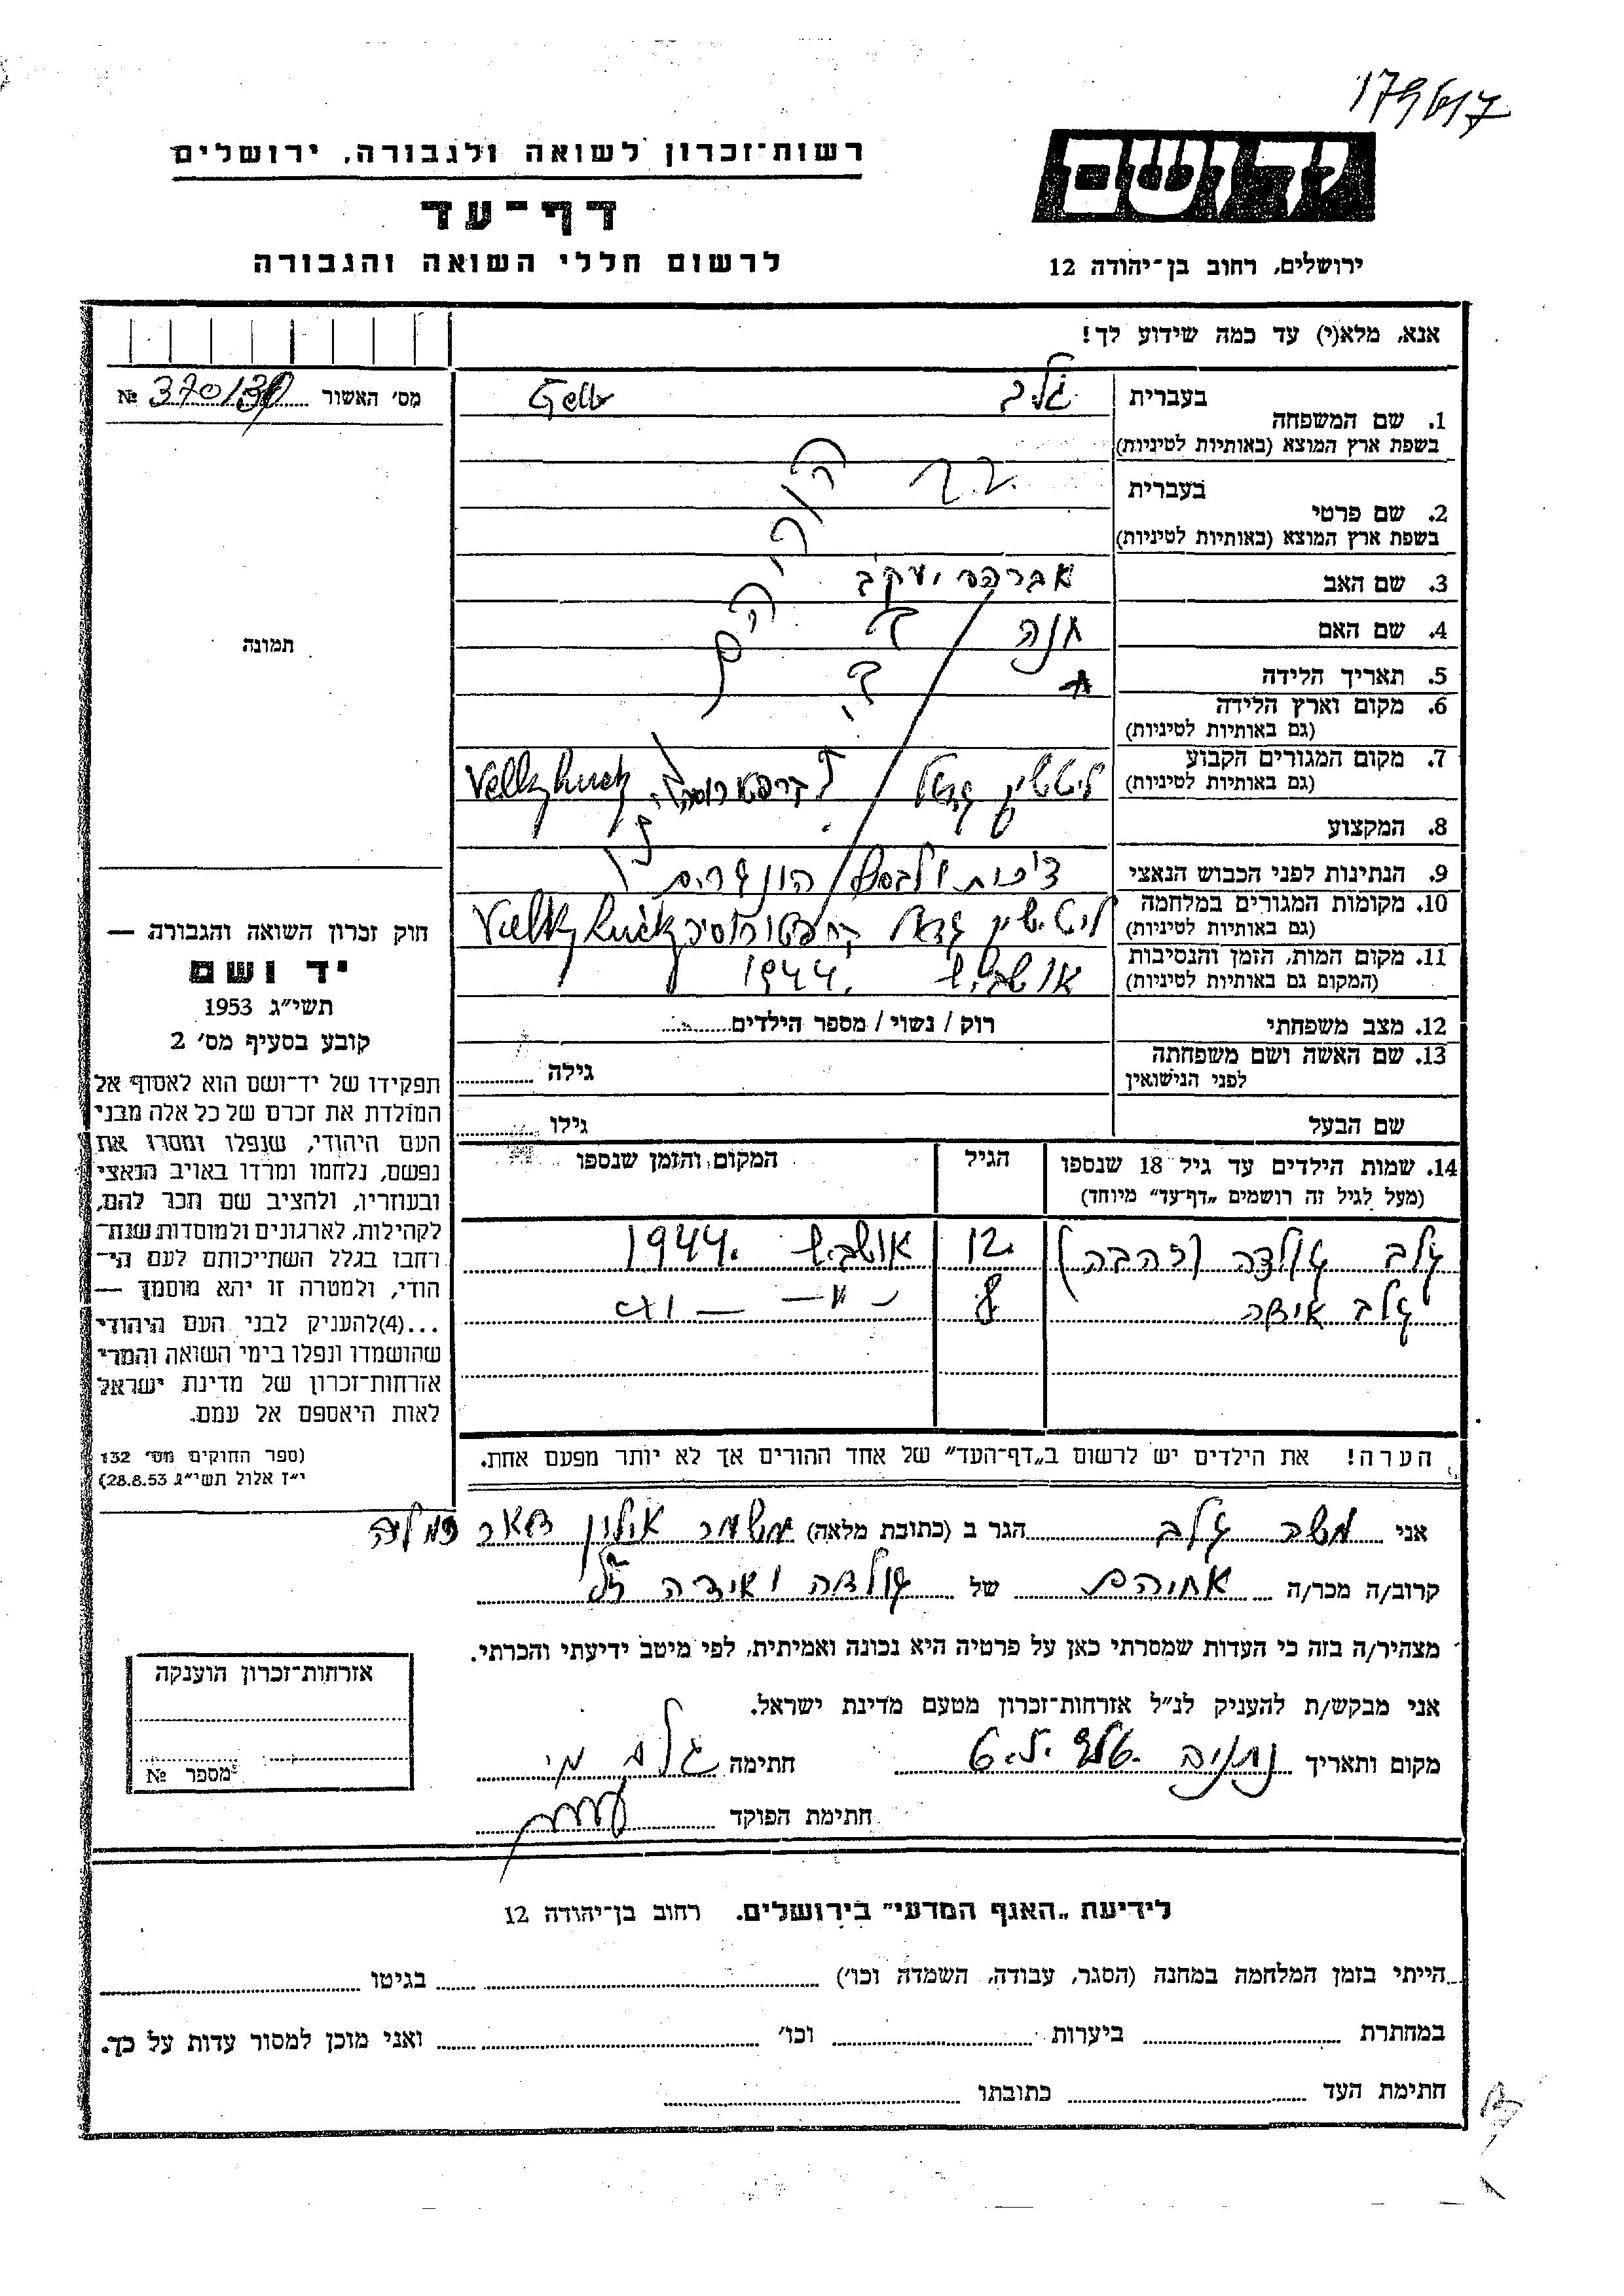 179617
יד ושם
רשות־זכרון לשואה ולגבורה, ירושלים
דף־עד
לרשום חללי השואה והגבורה
ירושלים, רחוב בן־יהודה 12
אנא, מלא(י) עד כמה שידוע לך!
מס׳ האשור № 370/30
1. שם המשפחה
בעברית גלב Gelb
בשפת ארץ המוצא (באותיות לטיניות)
2. שם פרטי
בעברית
בשפת ארץ המוצא (באותיות לטיניות)
3. שם האב אברהם יעקב
4. שם האם חנה
5. תאריך הלידה
6. מקום וארץ הלידה
(גם באותיות לטיניות)
7. מקום המגורים הקבוע
(גם באותיות לטיניות)
8. המקצוע
9. הנתינות לפני הכבוש הנאצי
10. מקומות המגורים במלחמה
(גם באותיות לטיניות)
11. מקום המות, הזמן והנסיבות אושביץ 1944.
(המקום גם באותיות לטיניות)
12. מצב משפחתי רוק / נשוי / מספר הילדים
13. שם האשה ושם משפחתה
לפני הנישואין גילה
שם הבעל גילו
תמונה
חוק זכרון השואה והגבורה —
יד ושם
תשי״ג 1953
קובע בסעיף מס׳ 2
תפקידו של יד־ושם הוא לאסוף אל
המולדת את זכרם של כל אלה מבני
העם היהודי, שנפלו ומסרו את
נפשם, נלחמו ומרדו באויב הנאצי
ובעוזריו, ולהציב שם וזכר להם,
לקהילות, לארגונים ולמוסדות שנח־
רבו בגלל השתייכותם לעם הי־
הודי, ולמטרה זו יהא מוסמך —
...(4)להעניק לבני העם היהודי
שהושמדו ונפלו בימי השואה והמרי
אזרחות־זכרון של מדינת ישראל
לאות היאספם אל עמם.
(ספר החוקים מס׳ 132
י״ז אלול תשי״ג 28.8.53)
14. שמות הילדים עד גיל 18 שנספו הגיל המקום והזמן שנספו
(מעל לגיל זה רושמים „דף־עד״ מיוחד)
גלב גולדה (זהבה) 12. אושביץ 1944.
גלב איצה 8 — ״ —
הערה! את הילדים יש לרשום ב„דף־העד״ של אחד ההורים אך לא יותר מפעם אחת.
אני משב גלב הגר ב (כתובת מלאה) משמר אילון דאר רמלה
קרוב/ה מכר/ה אחיהם של גולדה ואיצה ז״ל
מצהיר/ה בזה כי העדות שמסרתי כאן על פרטיה היא נכונה ואמיתית, לפי מיטב ידיעתי והכרתי.
אני מבקש/ת להעניק לנ״ל אזרחות־זכרון מטעם מדינת ישראל.
מקום ותאריך חתימה גלב
חתימת הפוקד
אזרחות־זכרון הוענקה
מספר №
לידיעת „האגף המדעי״ בירושלים. רחוב בן־יהודה 12
הייתי בזמן המלחמה במחנה (הסגר, עבודה, השמדה וכו׳) בגיטו
במחתרת ביערות וכו׳ ואני מוכן למסור עדות על כך.
חתימת העד כתובתו